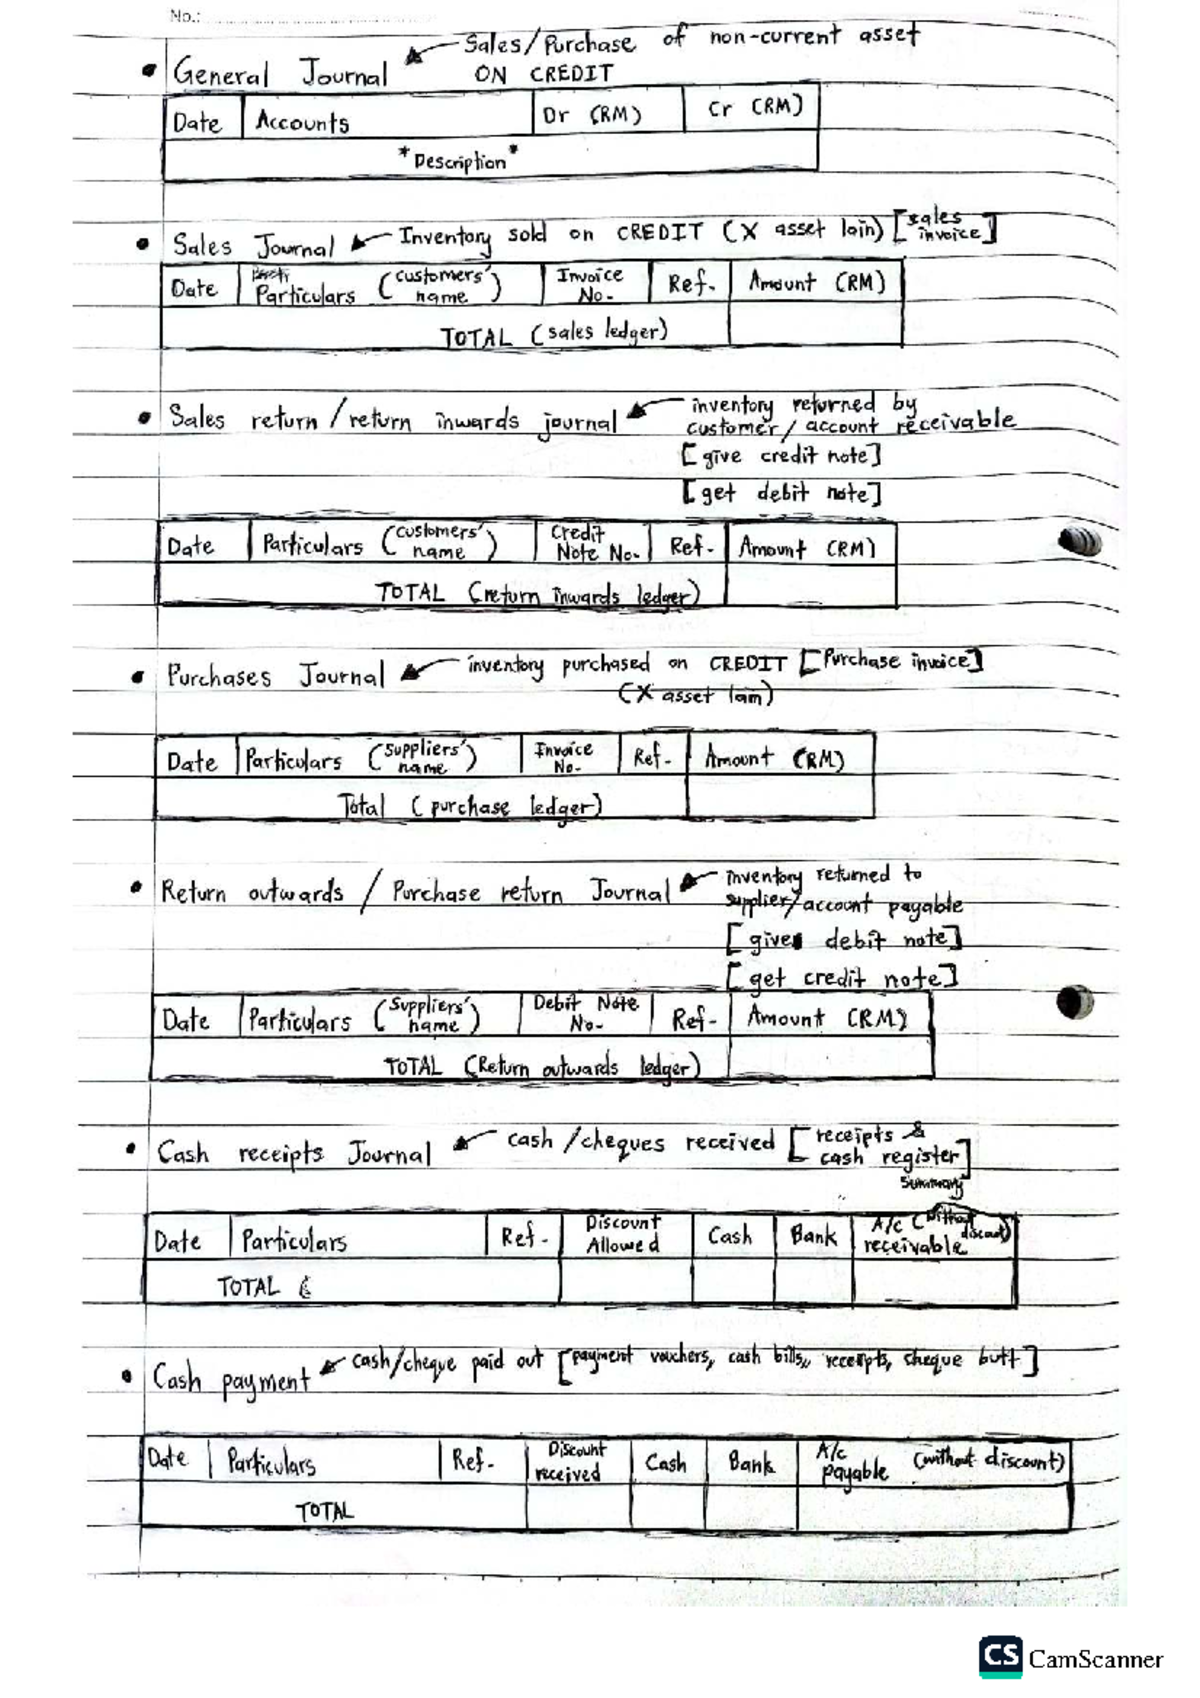 No.:
Sales/Purchase of non-current asset
• General Journal ON CREDIT
Date Accounts Dr (RM) Cr (RM)
*Description*
• Sales Journal Inventory sold on CREDIT (X asset lain) [sales invoice]
Date Particulars (customers' name) Invoice No. Ref. Amount (RM)
TOTAL (sales ledger)
• Sales return / return inwards journal inventory returned by
customer / account receivable
[give credit note]
[get debit note]
Date Particulars (customers' name) Credit Note No. Ref. Amount (RM)
TOTAL (return inwards ledger)
• Purchases Journal inventory purchased on CREDIT [Purchase invoice]
(X asset lain)
Date Particulars (suppliers' name) Invoice No. Ref. Amount (RM)
Total (purchase ledger)
• Return outwards / Purchase return Journal inventory returned to
supplier/account payable
[give debit note]
[get credit note]
Date Particulars (Suppliers' name) Debit Note No. Ref. Amount (RM)
TOTAL (Return outwards ledger)
• Cash receipts Journal cash/cheques received [receipts & cash register]
summary
Date Particulars Ref. Discount Allowed Cash Bank A/c receivable (without discount)
TOTAL (
• Cash payment cash/cheque paid out [payment vouchers, cash bills, receipts, cheque butt]
Date Particulars Ref. Discount received Cash Bank A/c payable (without discount)
TOTAL
CS CamScanner